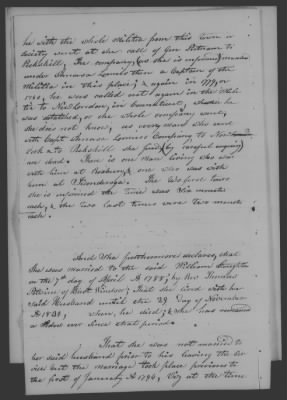 he with the whole Militia from this town &
society went at the call of Gen Putnam to
Pekskill, The company, (as she is informed) marched
under Sharaia Loomis then a Captain of the
Militia in this place; & again in 1779, or
1780, he was called out again in the Mili-
tia to New London, in Connecticut, whether he
was detached, or the whole company went,
she does not know, as every man who went
with Capt Loomis Company to
& to Pekskill she finds by careful enquiry
are dead. There is one man living who was
with him at Roxbury, & one who was with
him at Ticonderoga. The two first tours
she is informed the time was six months
each, & the two last times were two months
each.
And Who furthermore declares, that
She was married to the said William Stoughton
on the 7th day of April AD 1785, by Rev Thomas
Potwin of East Windsor; That she lived with her
said Husband until the 29 Day of November
AD 1831, when he died; & she has remained
a Widow ever since that period.
That she was not married to
her said husband prior to his leaving the Ser-
vice but the marriage took place previous to
the first of January AD 1794, Viz at the time